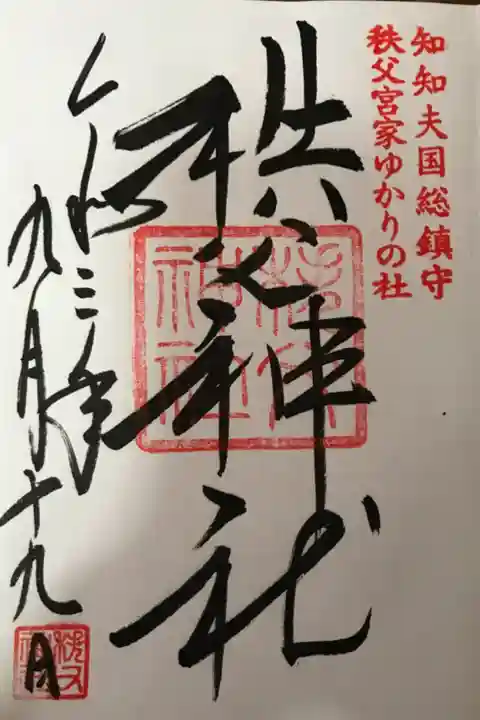 知知夫国総鎮守
秩父宮家ゆかりの社
秩父神社
令和三年
九月十九日
秩父
神社